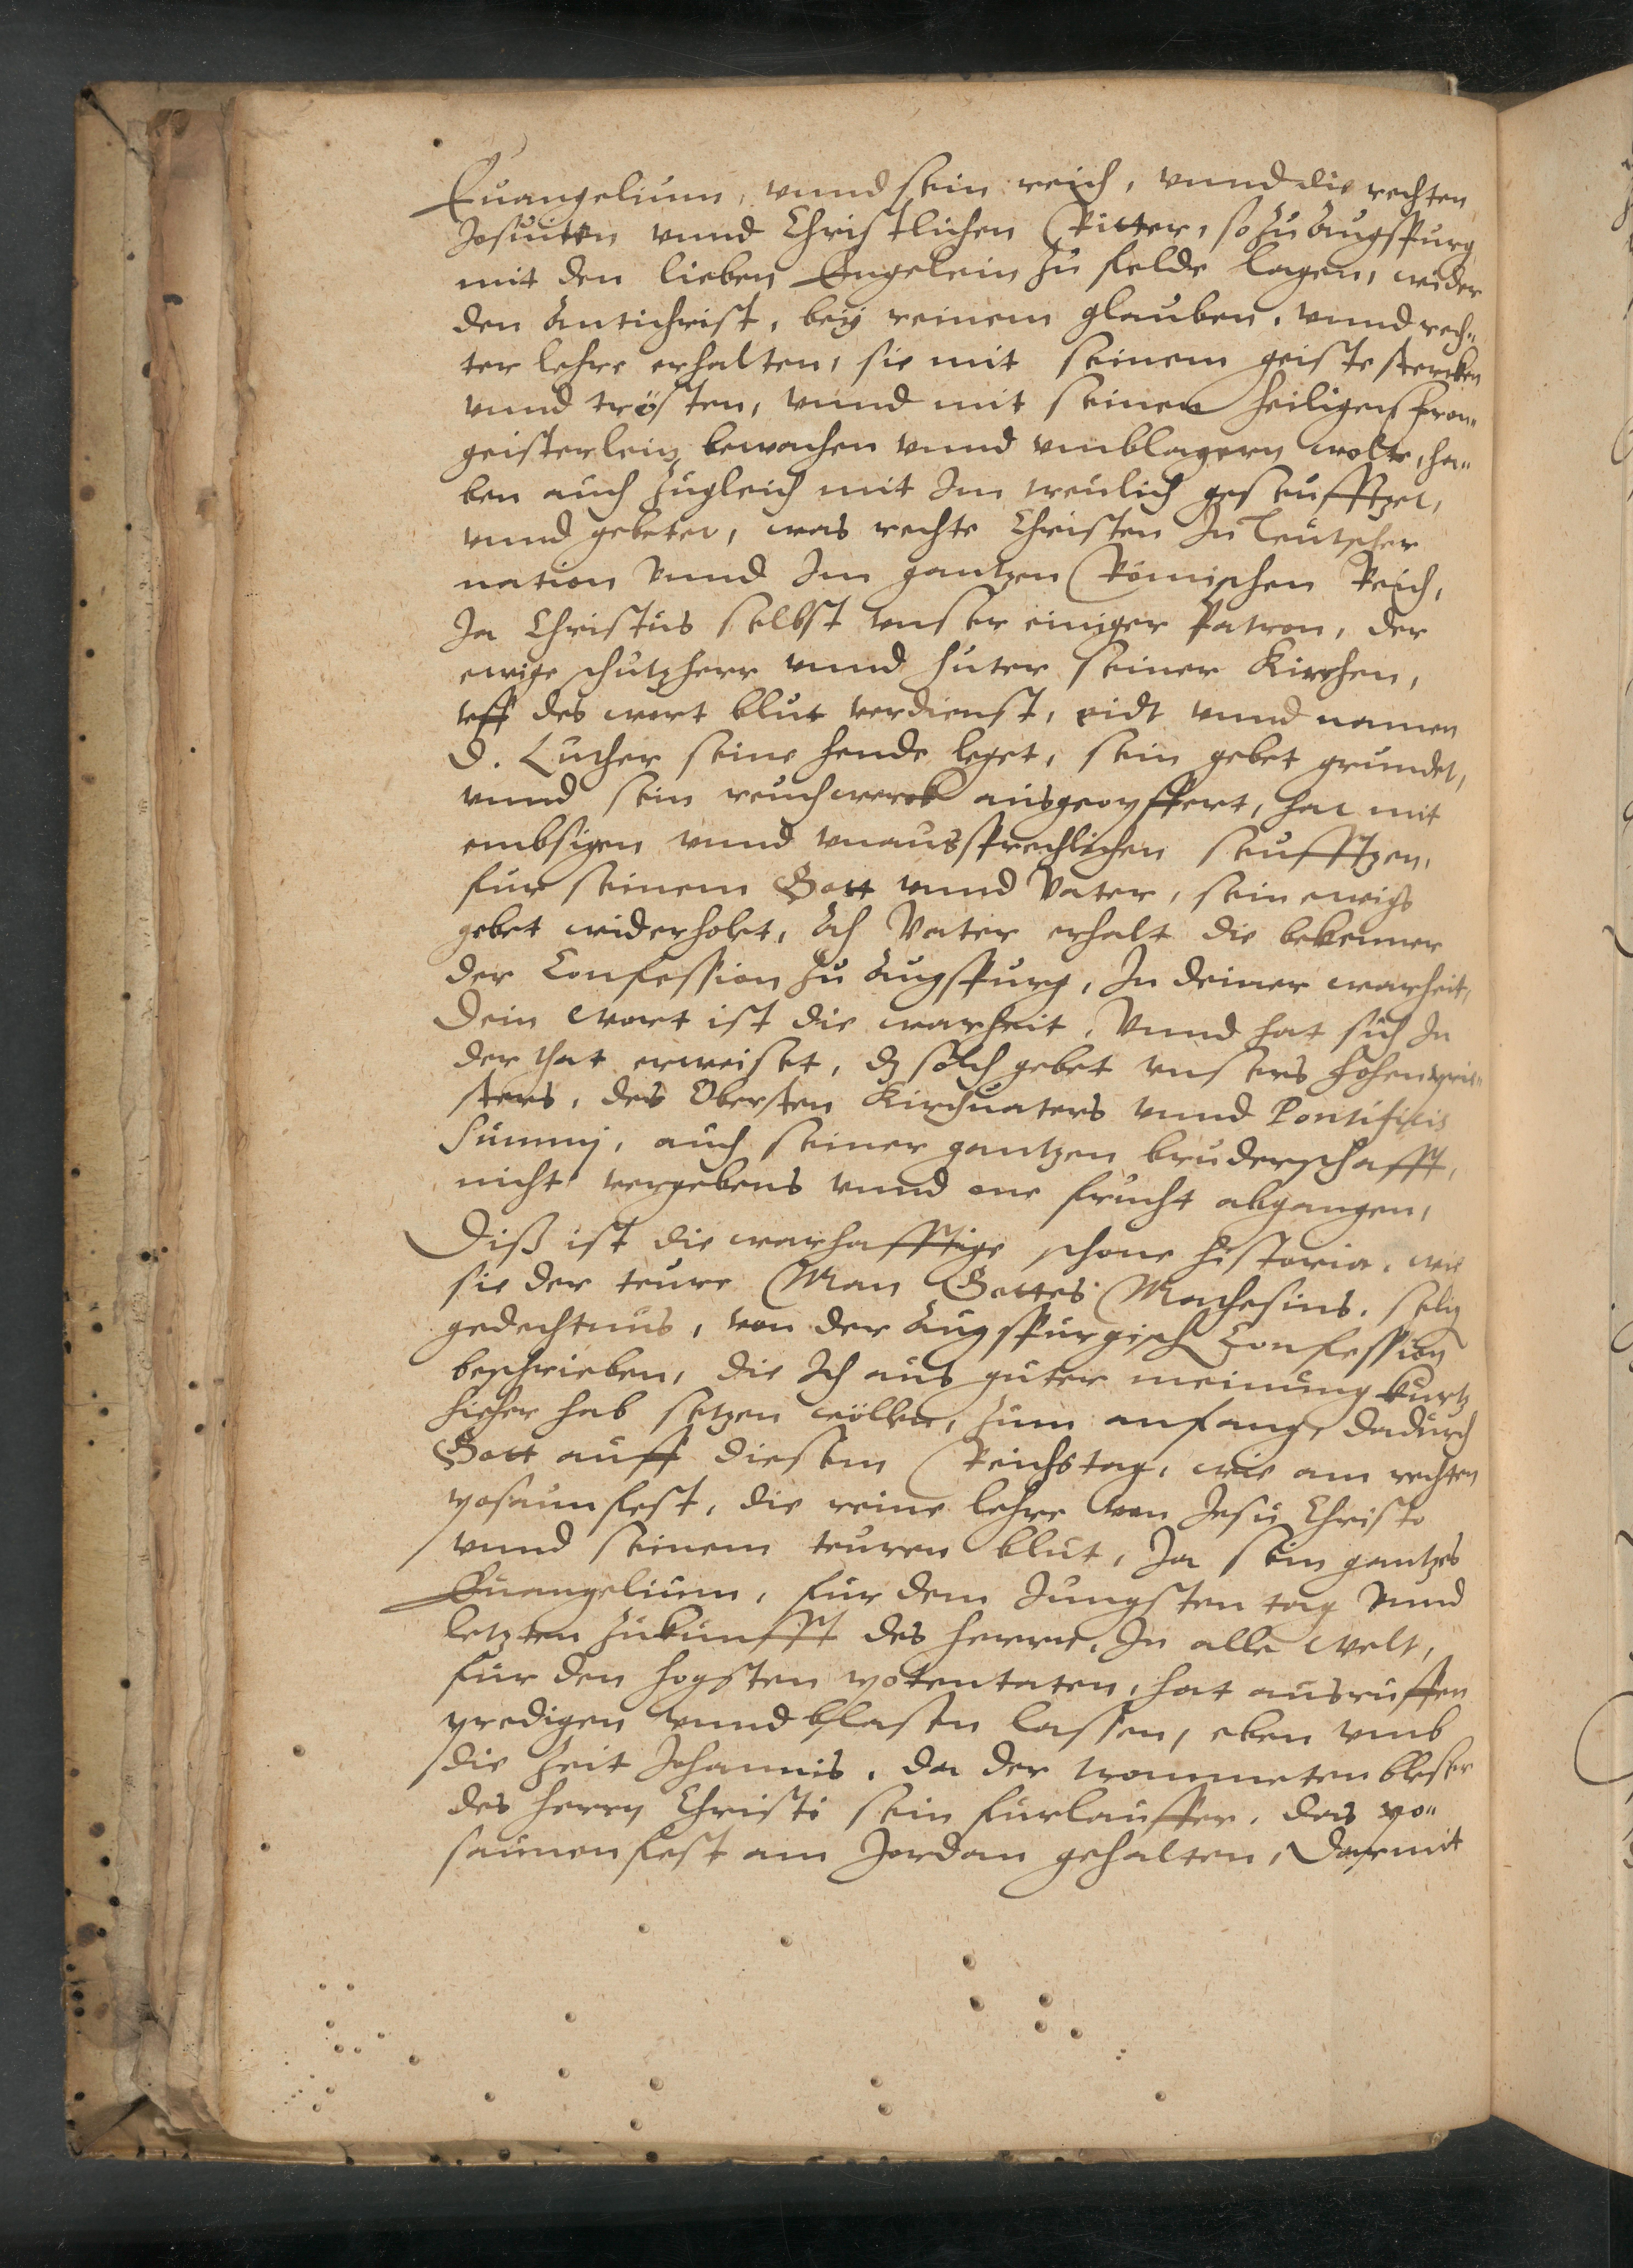 Euangelium, vnnd sein reich, vnnd die rechten
Jesuiten vnnd Christlichen Ritter, so zu Augspurg
mit den lieben Engelein zu felde lagen, wider
den Antichrist, bey reinem glauben, vnnd rech„
ter lehre erhalten, sie mit seinem geiste stercken
vnnd trösten, vnnd mit seinen heiligen fron„
geisterlein bewachen vnnd vmblagern wolte, ha„
ben auch zugleich mit Im treulich geseufftzet,
vnnd gebetet, was rechte Christen In Teutscher
nation Vnnd Im gantzen Römischen Reich,
Ja Christus selbst vnser einiger Patron, der
ewige schutzherr vnnd huter seiner Kirchen,
vff des wort blut verdienst, eidt vnnd namen
D. Luther seine hende leget, sein gebet grundet,
vnnd sein reuchwerck ausgeopffert, hat mit
embsigen vnnd vnaussprechlichen seufftzen,
fur seinem Gott vnnd Vater, sein ewigs
gebet widerholet, Ach Vater erhalt die bekenner
der Confession zu Augspurg, In deiner warheit,
Dein wort ist die warheit, Vnnd hat sich In
der that erweiset, dz solch gebet vnsers Hohenprie„
sters, des Obersten Kirchuaters vnnd Pontificis
Summj, auch seiner gantzen bruderschafft,
nicht vergebens vnnd one frucht abgangen,
Diß ist die warhafftige schone historia, wie
sie der teure Man Gottes Mathesius, selig
gedechtnus, von der Augspurgisch Confession
beschrieben, die Ich aus guter meinung kurtz
hieher hab setzen wöllen, zum anfang, dadurch
Gott auff diesem Reichstag, wie am rechten
posaun fest, die reine lehre von Jesu Christo
vnnd seinem teuren blut, Ja sein gantzes
Euangelium, fur dem Jungsten tag Vnnd
letzten zukunfft des herren, In alle welt,
fur den hogsten potentaten, hat ausruffen
predigen vnnd blasen lassen, eben vmb
die Zeit Johannis, da der trommeten bleser
des herrn Christi sein furlauffer, das po„
saunen fest am Jordan gehalten, Darmit